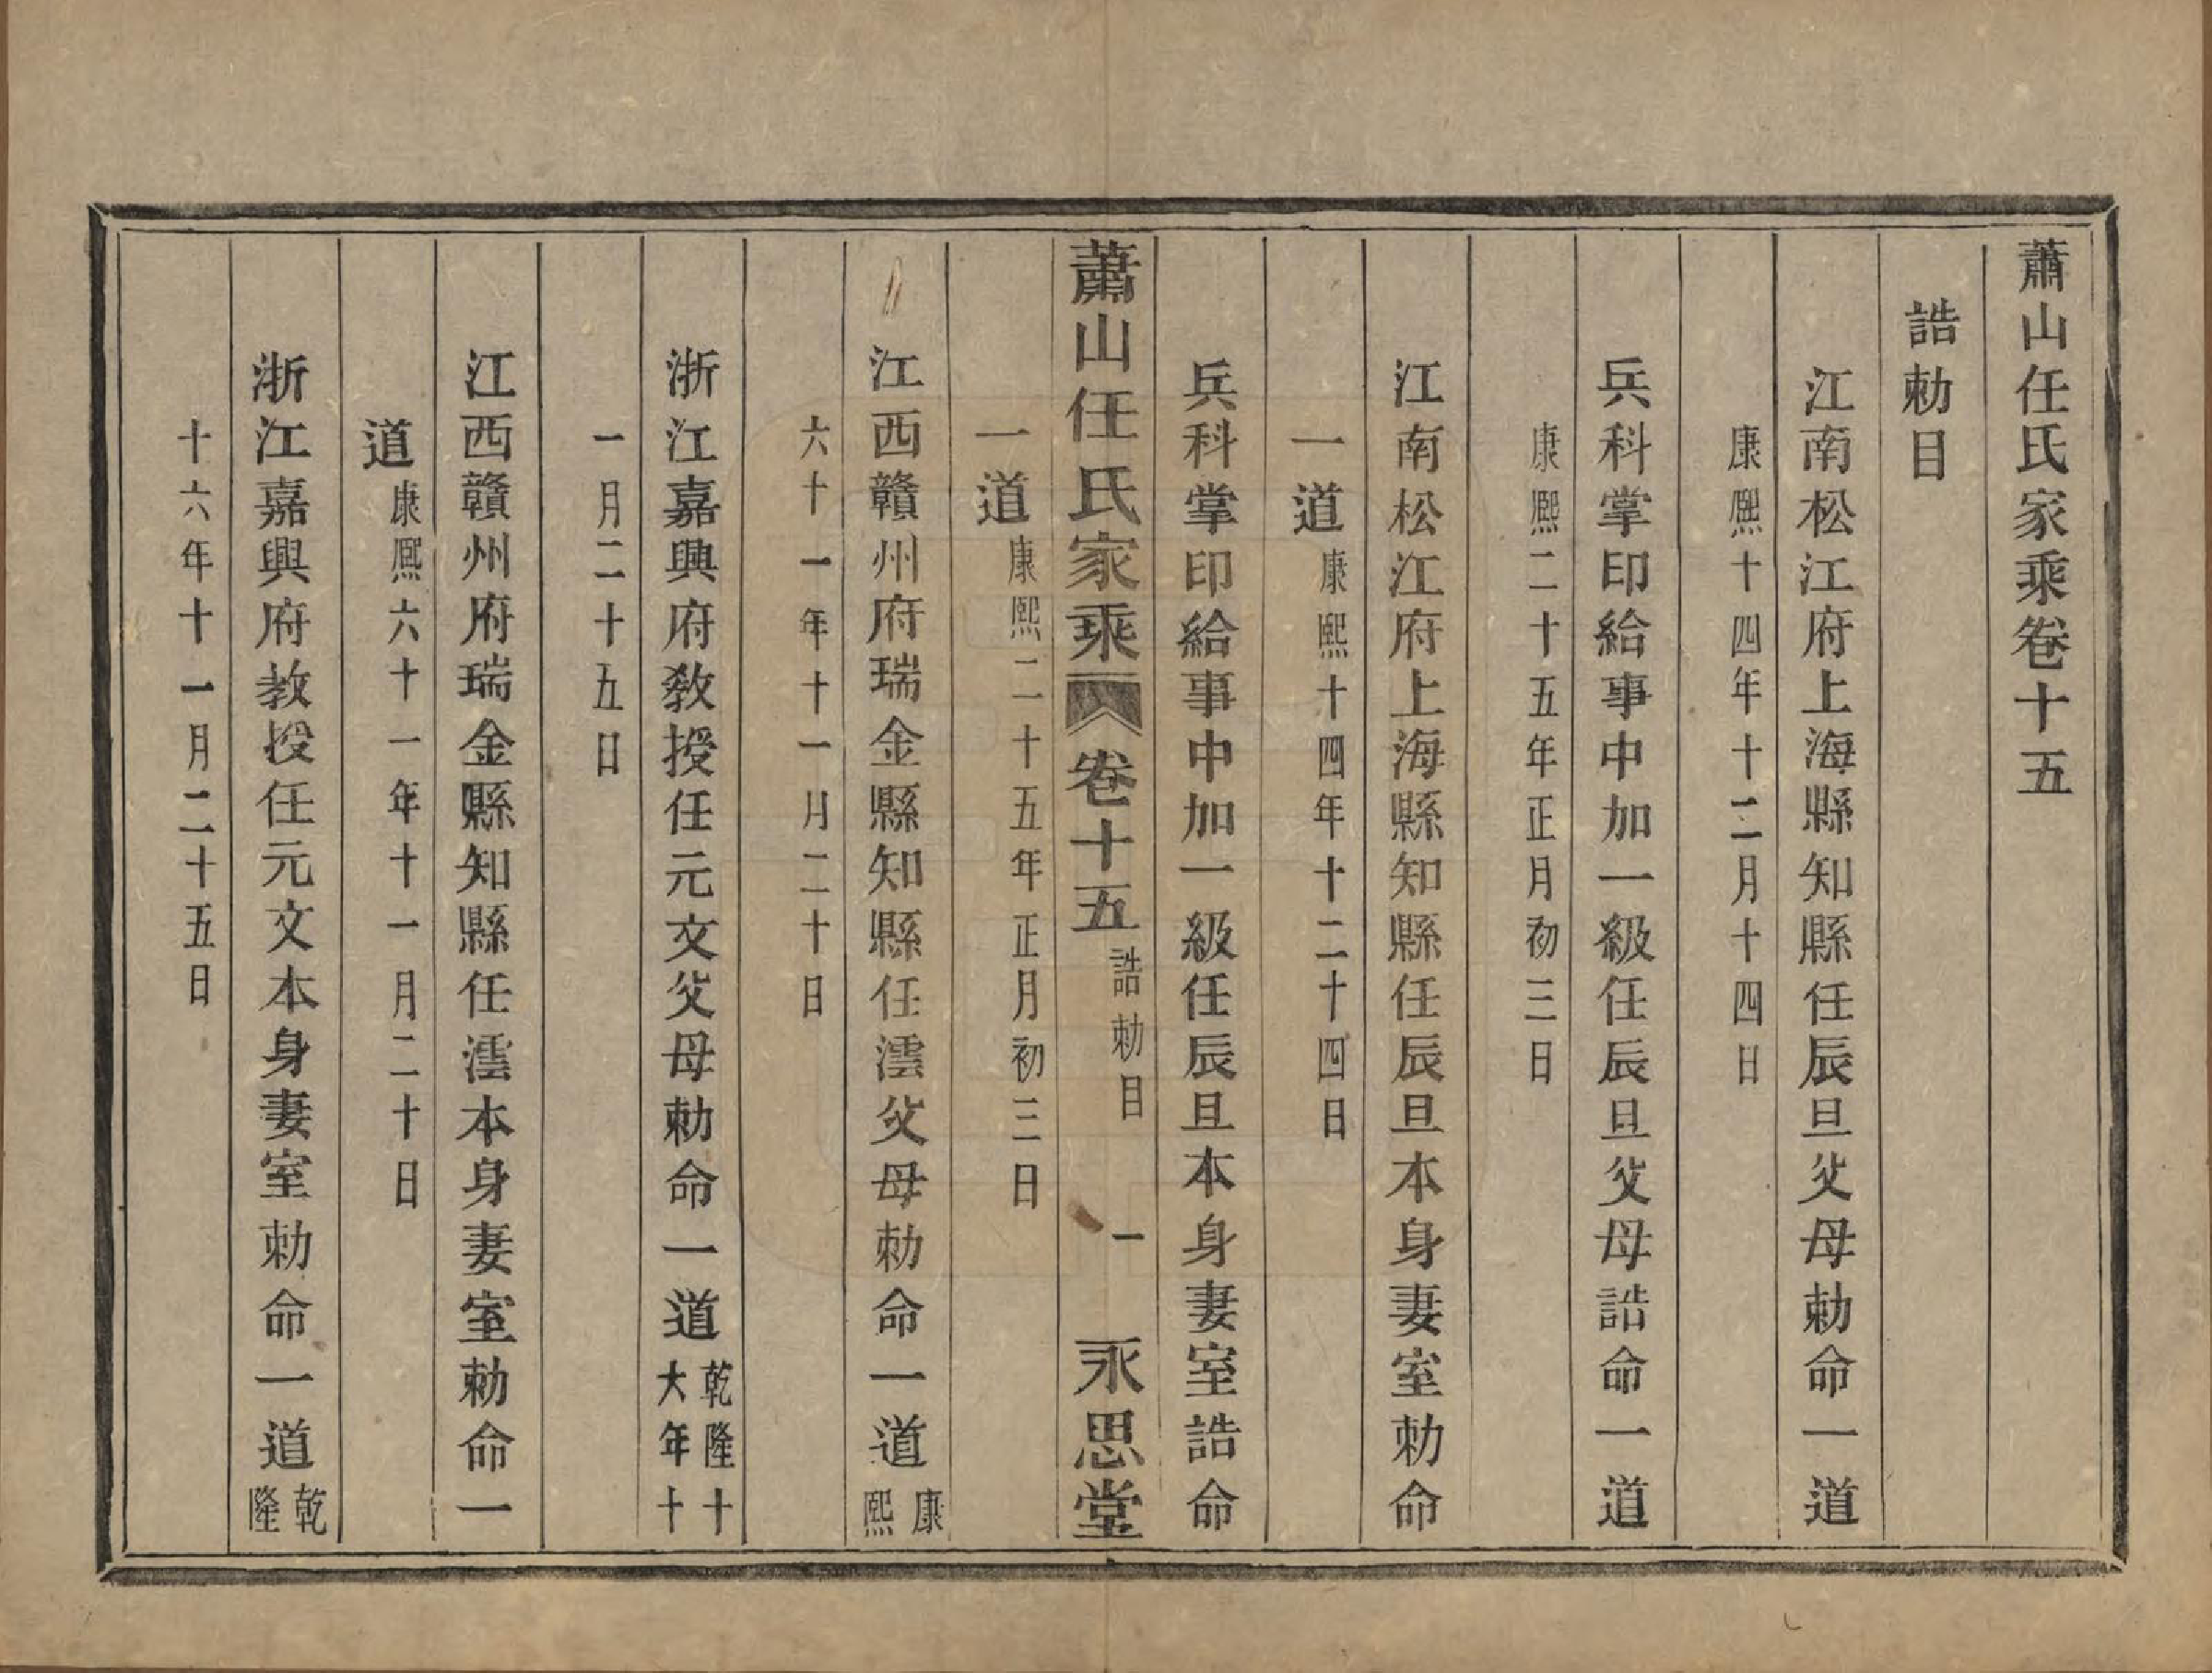 蕭山任氏家乘卷十五
誥勅目
江南松江府上海縣知縣任辰旦父母勅命一道
康熙十四年十二月十四日
兵科掌印給事中加一級任辰旦父母誥命一道
康熙二十五年正月初三日
江南松江府上海縣知縣任辰旦本身妻室勅命
一道康熙十四年十二十四日
兵科掌印給事中加一級任辰旦本身妻室誥命
蕭山任氏家乘 卷十五 誥勅目 一 永思堂
一道康熙二十五年正月初三日
江西贛州府瑞金縣知縣任澐父母勅命一道康熙
六十一年十一月二十日
浙江嘉興府教授任元文父母勅命一道乾隆十大年十
一月二十五日
江西贛州府瑞金縣知縣任澐本身妻室勅命一
道康熙六十一年十一月二十日
浙江嘉興府教授任元文本身妻室勅命一道乾隆
十六年十一月二十五日